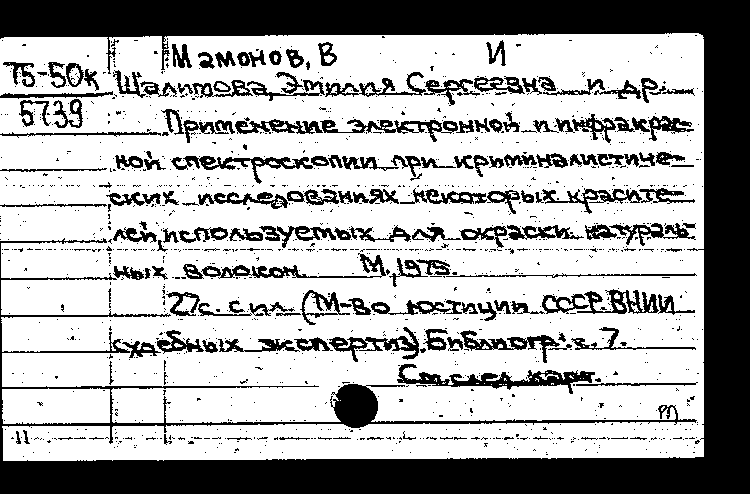 Мамонов, В И
75-50к Шалимова, Эмилия Сергеевна и др.
5739 Применение электронной и инфракрас-
ной спектроскопии при криминалистиче-
ских исследованиях некоторых красите-
лей, используемых для окраски натураль-
ных волокон. М., 1975.
27с. с ил. (М-во юстиции СССР. ВНИИ
судебных экспертиз). Библиогр.: с. 7.
См. след. карт.
11